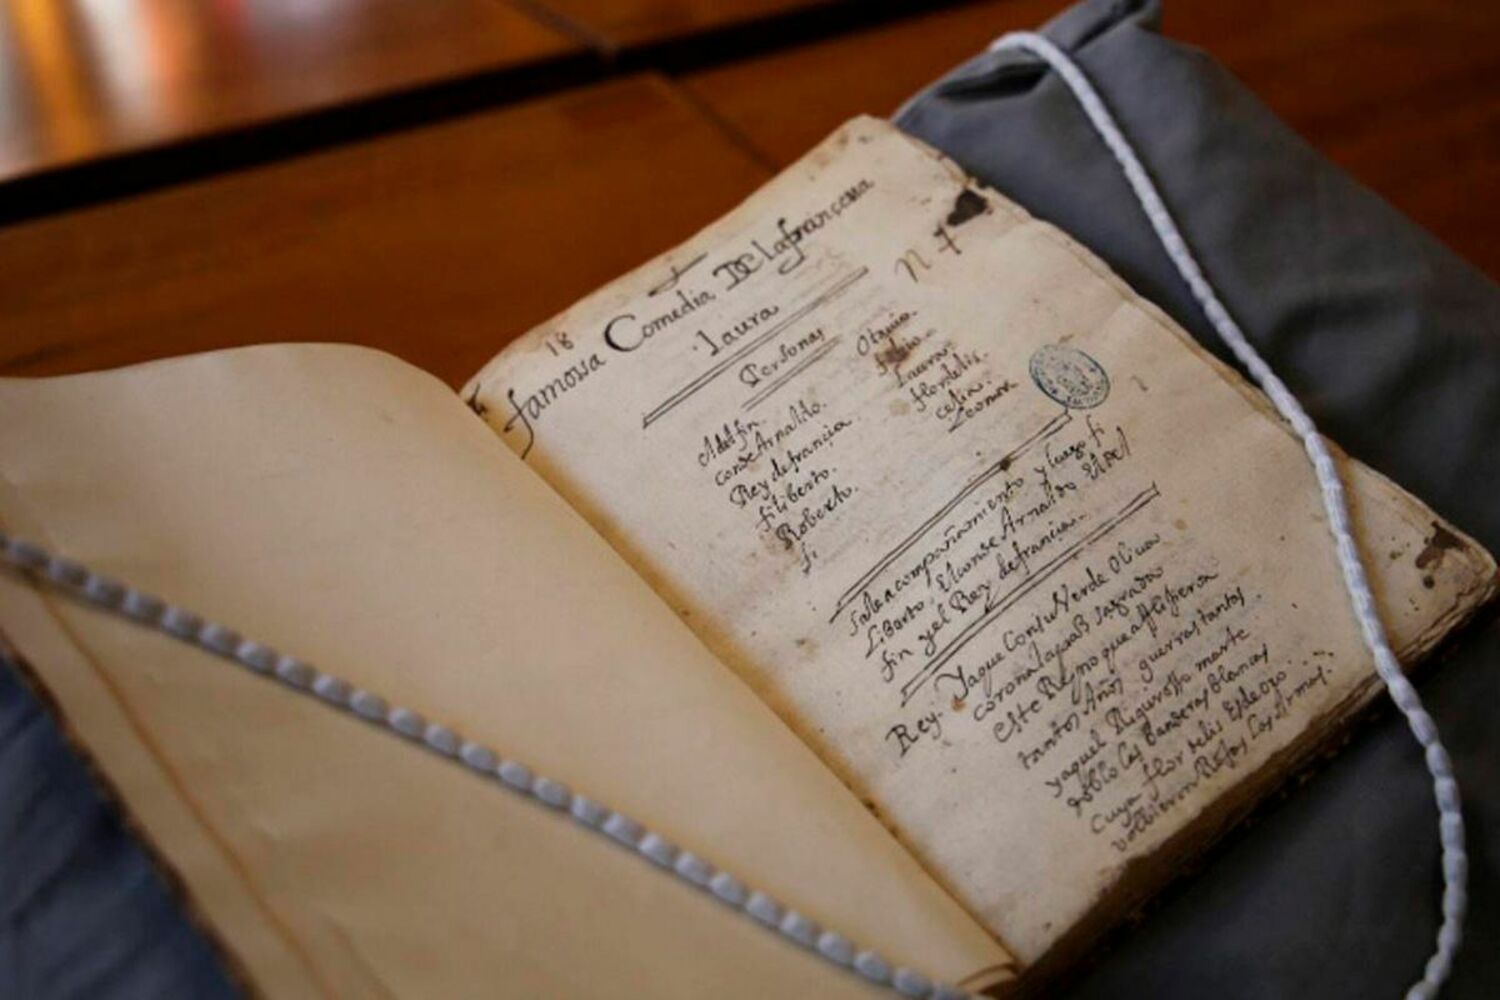 18
famosa Comedia De la françesa
Laura
n 7
Personas
Adolfin.
conde Arnaldo.
Rey de françia.
filiberto.
Roberto.
fi
Otavio.
fabio.
Laura.
flordelis.
celia.
Leonora
Sale acompañamiento y luego fi
liberto. El conde Arnaldo El Del
fin y el Rey de francia.
Rey. Ya que Con su Verde Oliva
corona la paz sagrada
este Reyno que afligieran
tantos Años guerras tantas.
y aquel Riguroso marte
doblo las banderas blancas
cuya flor de lis El de ozo
volbieron Rojas las Armas.